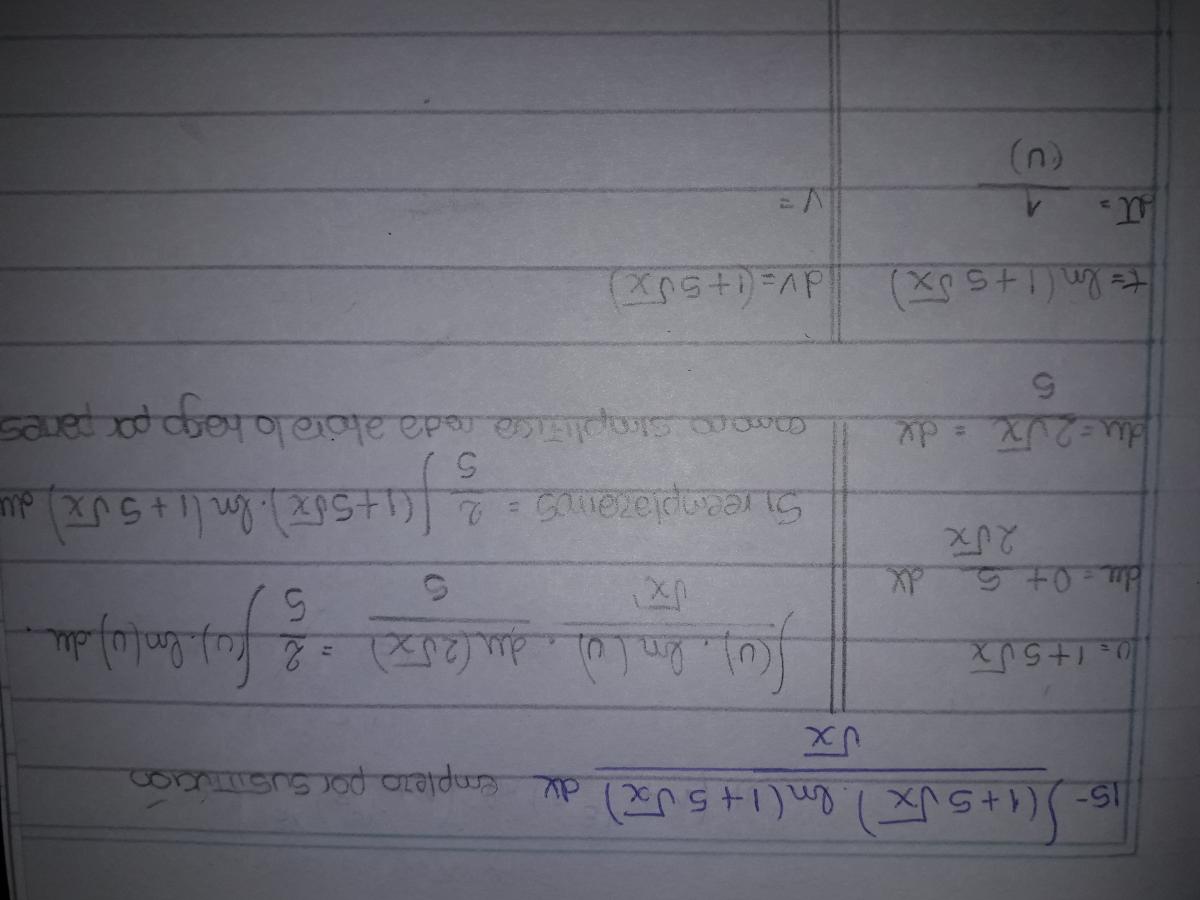 15- ∫ (1+5√x) . ln(1+5√x) / √x dx empiezo por sustitución
u = 1+5√x ∫ (u) . ln(u) / √x . du(2√x) / 5 = 2/5 ∫ (u) . ln(u) du .
du = 0 + 5 / 2√x dx Si reemplazamos = 2/5 ∫ (1+5√x) . ln(1+5√x) du
du = 2√x / 5 = dx como no simplifica nada ahora lo hago por partes
t = ln(1+5√x) dv = (1+5√x)
dt = 1 / (u) v =